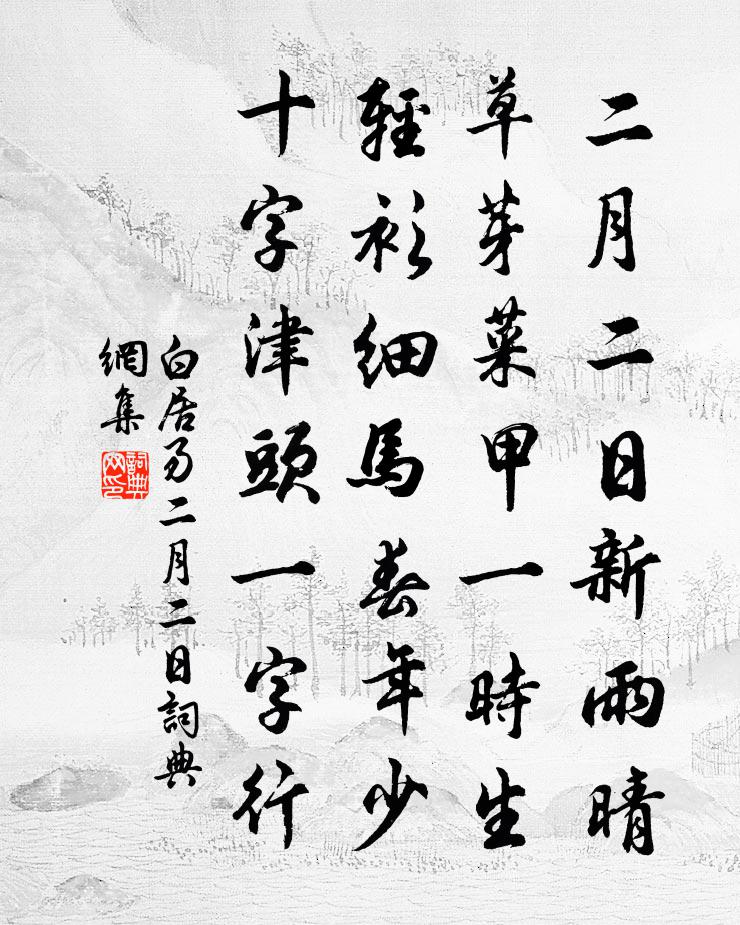 二月二日新雨晴
草芽菜甲一時生
輕衫細馬春年少
十字津頭一字行
白居易二月二日詞典
網集
詞典
网印